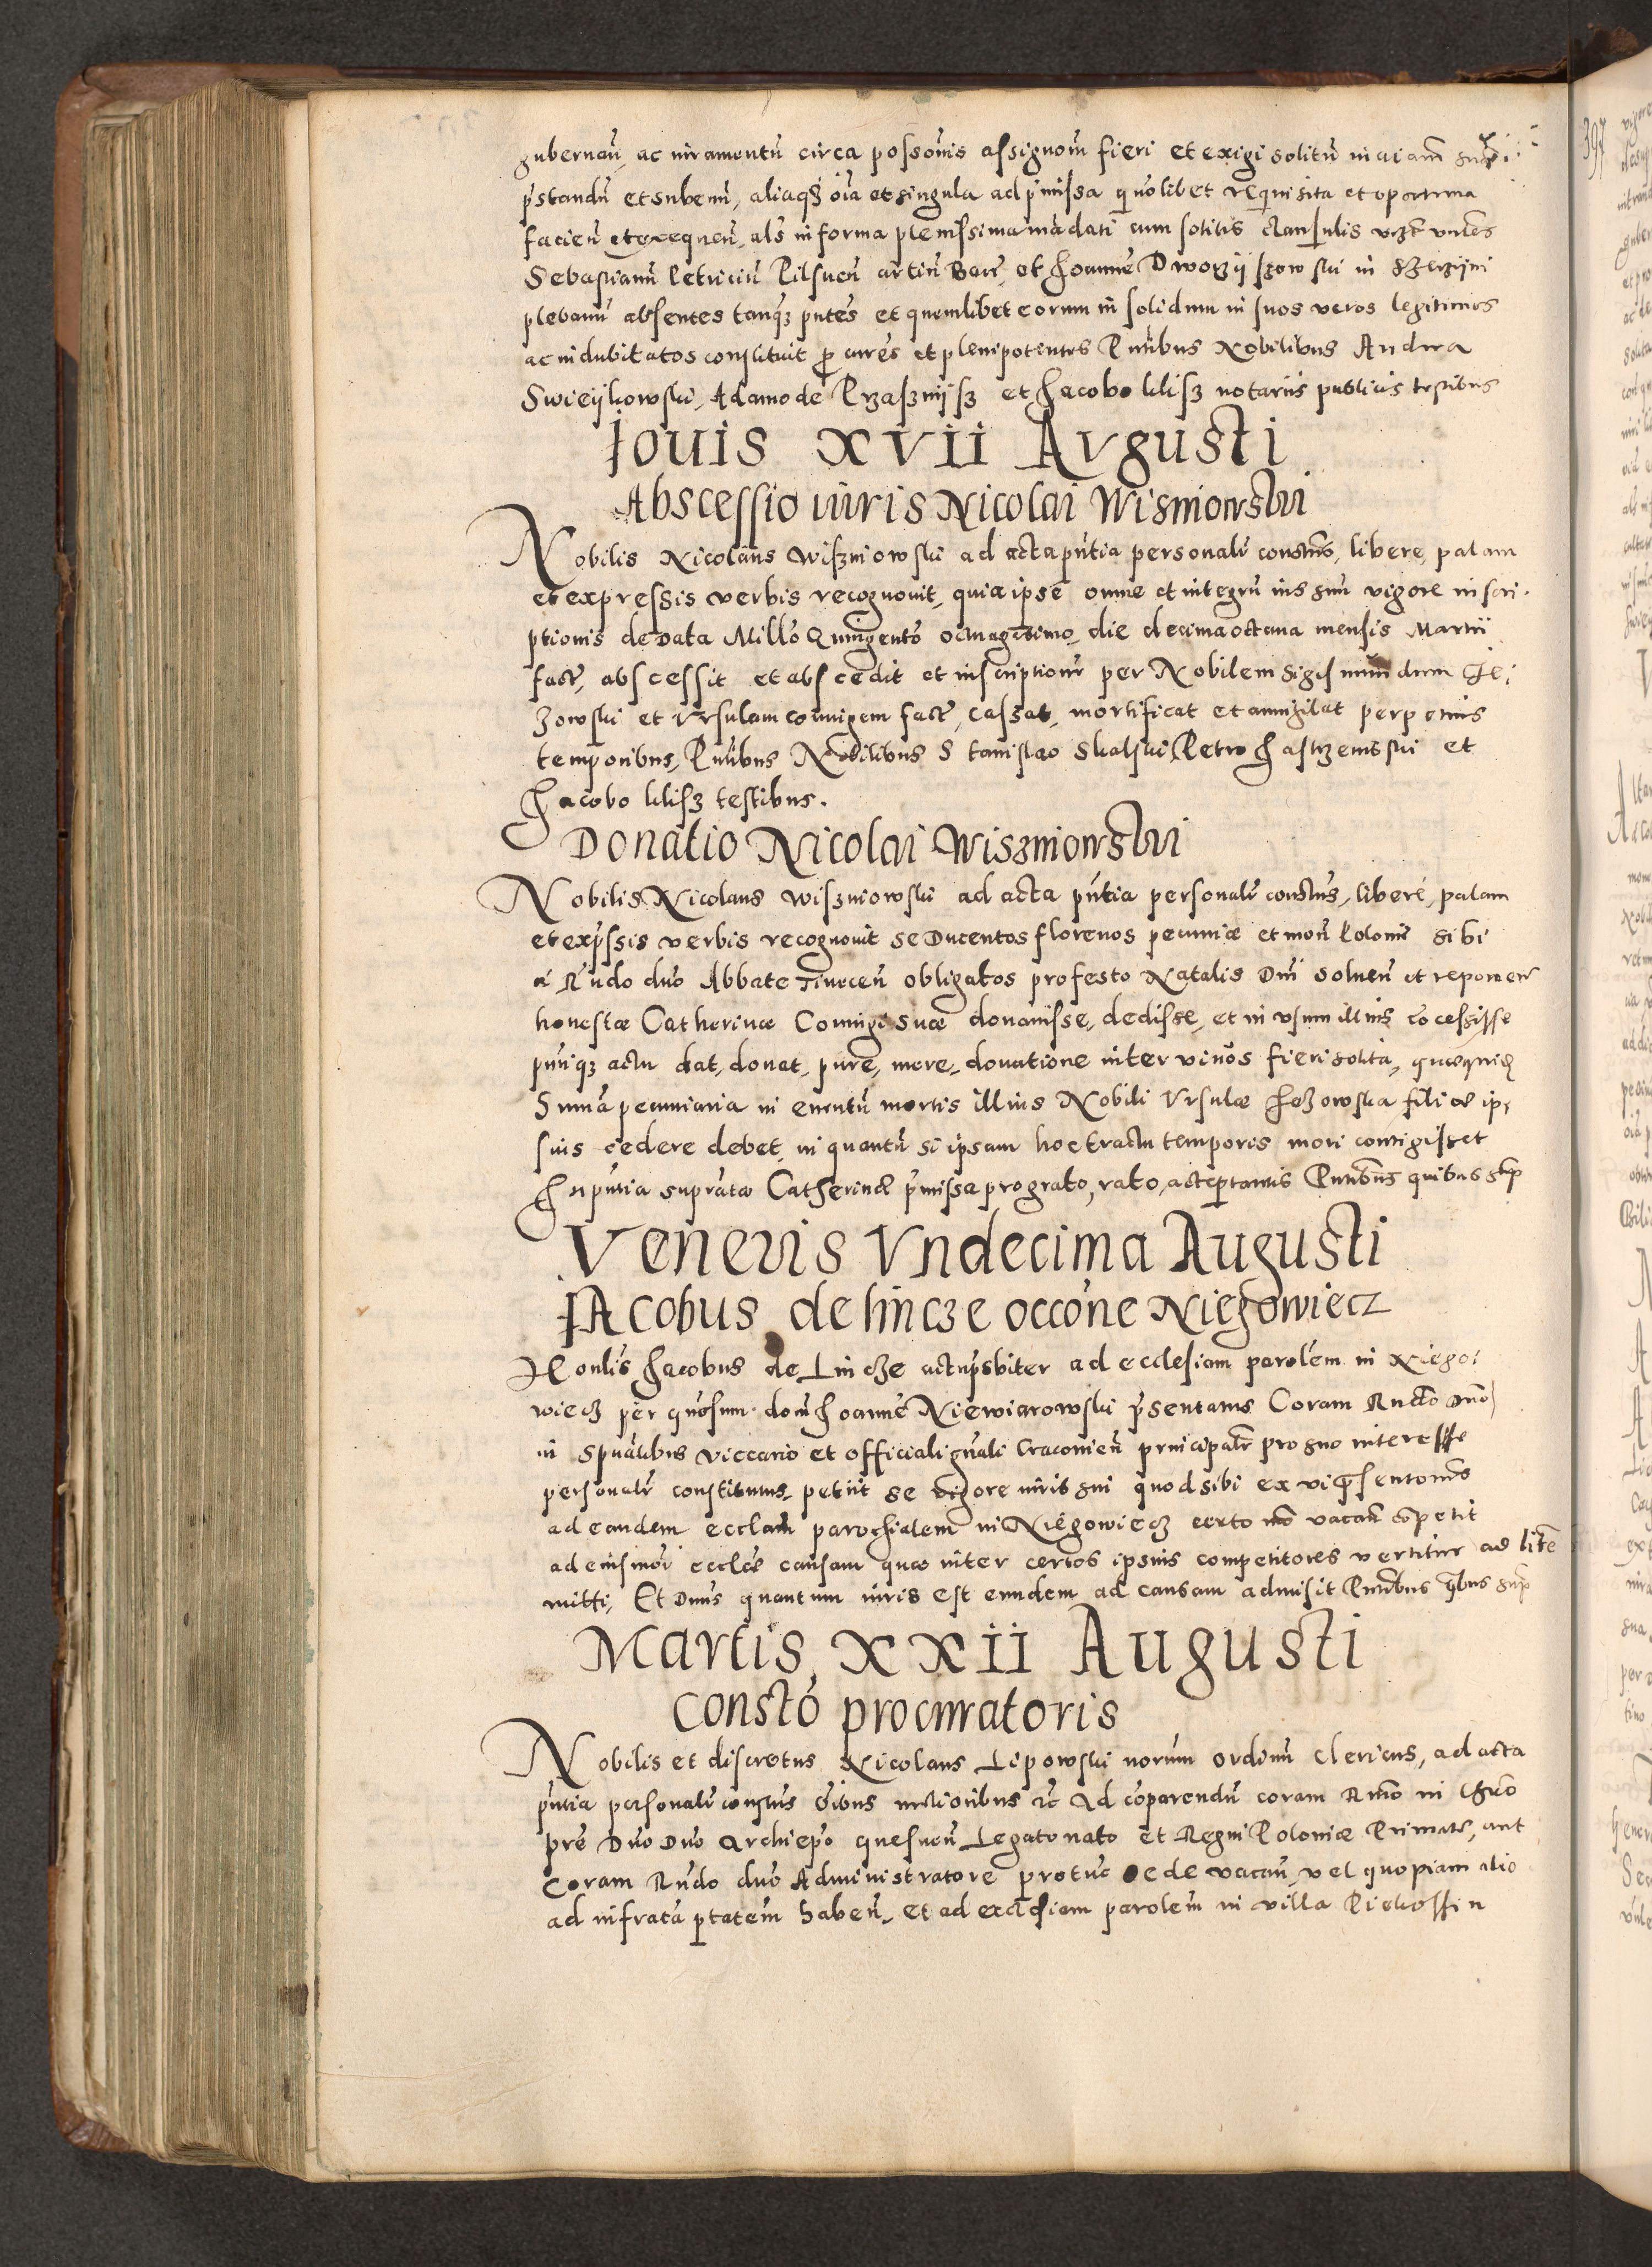 gubernań, ac iuramentũ circa possoñis assignoñi fieri et exigi solitũ in aiam suã
p̃standũ et subeuñ, aliaqȝ oĩa et singula ad p̃missa quõlibet requisita et oportuna
facień et exequeñ, als in forma plenissima mãdati cum solitis clausulis
Sebastianũ Petriciũ Pilsneñ artiũ Bacc̃, et Joannẽ in
plebanũ absentes tanqȝ p̃ntes et quemlibet eorum in solidum in suos veros legitimos
ac indubitatos constituit p cures et plenipotentes P̃ntibus Nobilibus Andrea
Swieijkowski, Adamo de Przasznijsz et Jacobo Klisz notariis publicis testibus
Jouis XVII Avgusti
Abscessio iuris Nicolai Wisniowski
Nobilis Nicolaus Wiszniowski ad acta p̃ntia personalr̃ constũs, libere, palam
et expressis verbis recognouit, quia ipse omne et integrũ ius suũ vigore inscri
ptionis de Data Millõ Quingentõ octuagesimo, die decima octaua mensis Martii
fact̃, abscessit et abscedit et inscriptionẽ per Nobilem Sigismundum Je
zowski et Vrsulam coniugem fact̃, cassat, mortificat et annigilat perpetuis
temporibus, P̃ntibus Nobilibus Stanislao Skalski, Petro Jastrzemski et
Jacobo Klisz testibus.
Donatio Nicolai Wiszniowski
Nobilis Nicolaus Wiszniowski ad acta p̃ntia personalr̃ constũs, liberé, palam
et exp̃ssis verbis recognouit se Ducentos florenos pecuniæ et moñ Poloniẽ sibi
a R̃ndo dño Abbate Tineceñ obligatos pro festo Natalis Dñi soluen̄ et reponen̄
honestæ Catherinæ Coniugi suæ donauisse, dedisse, et in vsum illius cõcessisse
p̃ntiqȝ actu dat, donat, pure, mere, donatione inter viuos fieri solita, quæquidẽ
Summa pecuniaria in euentũ mortis illius Nobili Vrsulæ Jezowska filiæ ip
sius cedere debet, in quantũ si ipsam hoc tractu temporis mori contigisset
In p̃ntia sup̃ratæ Catherinæ p̃missa pro grato, rato, acceptantis P̃ntibus quibus sup̃
Veneris Vndecima Augusti
JAcobus de Lincze occõne Niegowiecz
Honlis Jacobus de Lincze actu p̃sbiter ad ecclesiam parolẽm in Niego
wiecz per gñosum doñ Joannẽ Niewiarowski p̃sentatus Coram Rndõ Dño
in Spũalibus viccario et officiali gñali Cracouieñ principalr̃ pro suo interesse
personalr̃ constitutus, petiit se vigore iuris sui quod sibi ex vi p̃sentonis
ad eandem ecclam parochialem in Niegowiecz certo mõ vacañ cõpetit
ad eiusmõi ecclẽ causam quæ inter certos ipsius competitores vertitur ad litẽ
mitti, Et Dñus quantum iuris est eundem ad causam admisit P̃ntibus qbus sup̃
Martis XXII Augusti
Constõ procuratoris
Nobilis et discretus Nicolaus Lipowski ñorum ordinũ clericus, ad acta
p̃ntia personalr̃ constũs õibus melioribus ꝛc Ad cõparendũ coram Rmõ in Chrõ
pr̃e Dño Dño Archiep̃o gnesneñ Legato nato et Regni Poloniæ Primate, aut
coram Rñdo dño Administratore protũc sede vacañ, vel quopiam alio
ad infrata ptatem habeñ, et ad ecclesiam parolẽm in villa